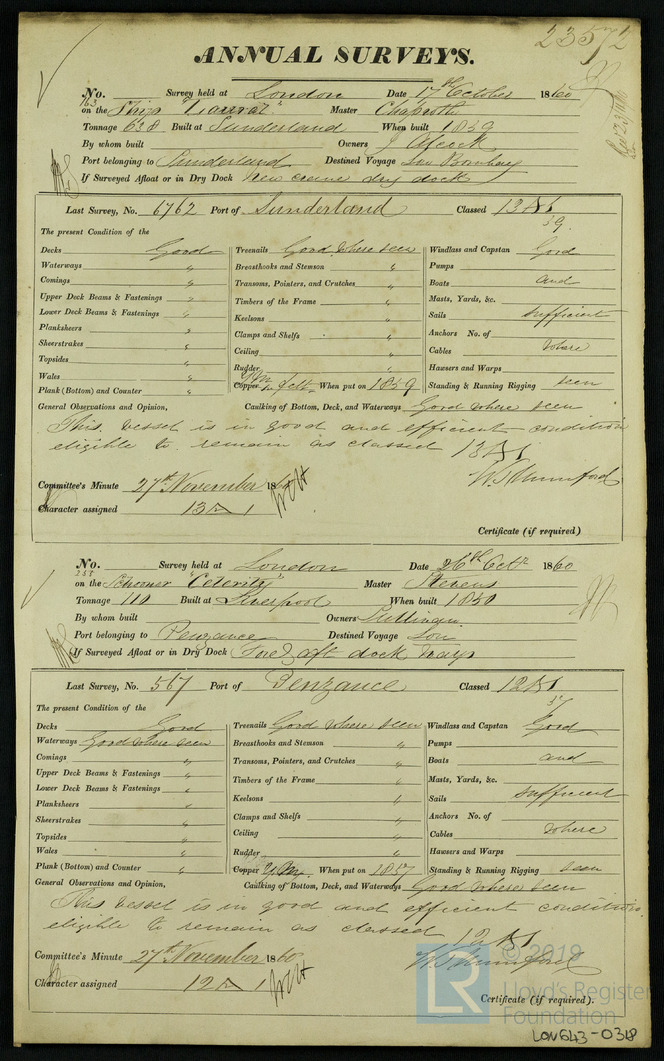 23572
ANNUAL SURVEYS.
No. 163 Survey held at London Date 17th October 1860
on the Ship "Lanrat" Master
Tonnage 638 Built at Sunderland When built 1859
By whom built Owners J Alcock
Port belonging to Sunderland Destined Voyage Lon Bombay
If Surveyed Afloat or in Dry Dock New crane dry dock
Last Survey, No. 6762 Port of Sunderland Classed 13 A 1
59.
The present Condition of the
Decks Good Treenails Good where seen Windlass and Capstan Good
Waterways " Breasthooks and Stemson " Pumps
Comings " Transoms, Pointers, and Crutches " Boats and
Upper Deck Beams & Fastenings " Timbers of the Frame " Masts, Yards, &c.
Lower Deck Beams & Fastenings " Keelsons " Sails sufficient
Planksheers " Clamps and Shelfs " Anchors No. of
Sheerstrakes " Ceiling " Cables where
Topsides " Rudder " Hawsers and Warps
Wales " Copper Y M Felt When put on 1859 Standing & Running Rigging seen
Plank (Bottom) and Counter "
General Observations and Opinion, Caulking of Bottom, Deck, and Waterways Good where seen
This vessel is in good and efficient condition
eligible to remain as classed 13 A 1
W. S. Mumford
Committee's Minute 27th November 1860
Character assigned 13 A 1
Certificate (if required)
No. 258 Survey held at London Date 26th Octr 1860
on the Schooner "Celerity" Master Stevens
Tonnage 110 Built at Liverpool When built 1850
By whom built Owners
Port belonging to Penzance Destined Voyage Lon
If Surveyed Afloat or in Dry Dock Fore & aft dock Ways
Last Survey, No. 567 Port of Penzance Classed 12 A 1
57
The present Condition of the
Decks Good Treenails Good where seen Windlass and Capstan Good
Waterways Good where seen Breasthooks and Stemson " Pumps
Comings " Transoms, Pointers, and Crutches " Boats and
Upper Deck Beams & Fastenings " Timbers of the Frame " Masts, Yards, &c.
Lower Deck Beams & Fastenings " Keelsons " Sails sufficient
Planksheers " Clamps and Shelfs " Anchors No. of
Sheerstrakes " Ceiling " Cables where
Topsides " Rudder " Hawsers and Warps
Wales " Copper Y.M. When put on 1857 Standing & Running Rigging seen
Plank (Bottom) and Counter "
General Observations and Opinion, Caulking of Bottom, Deck, and Waterways Good where seen
This vessel is in good and efficient condition,
eligible to remain as classed 12 A 1
W. S. Mumford
Committee's Minute 27th November 1860
Character assigned 12 A 1
Certificate (if required).
© 2019
LR Lloyd's Register
Foundation
LON643-0318